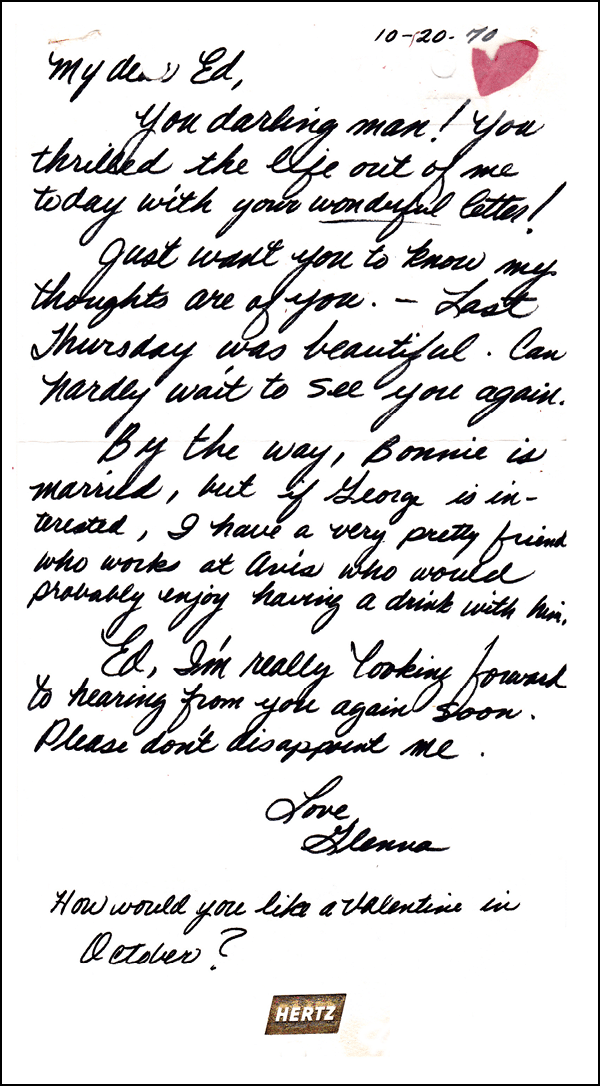 10-20-70
My dear Ed,
You darling man! You
thrilled the life out of me
today with your wonderful letter!
Just want you to know my
thoughts are of you. — Last
Thursday was beautiful. Can
hardly wait to see you again.
By the way, Bonnie is
married, but if George is in-
terested, I have a very pretty friend
who works at Avis who would
probably enjoy having a drink with him.
Ed, I'm really looking forward
to hearing from you again soon.
Please don't disappoint me.
Love,
Glenna
How would you like a Valentine in
October?
HERTZ